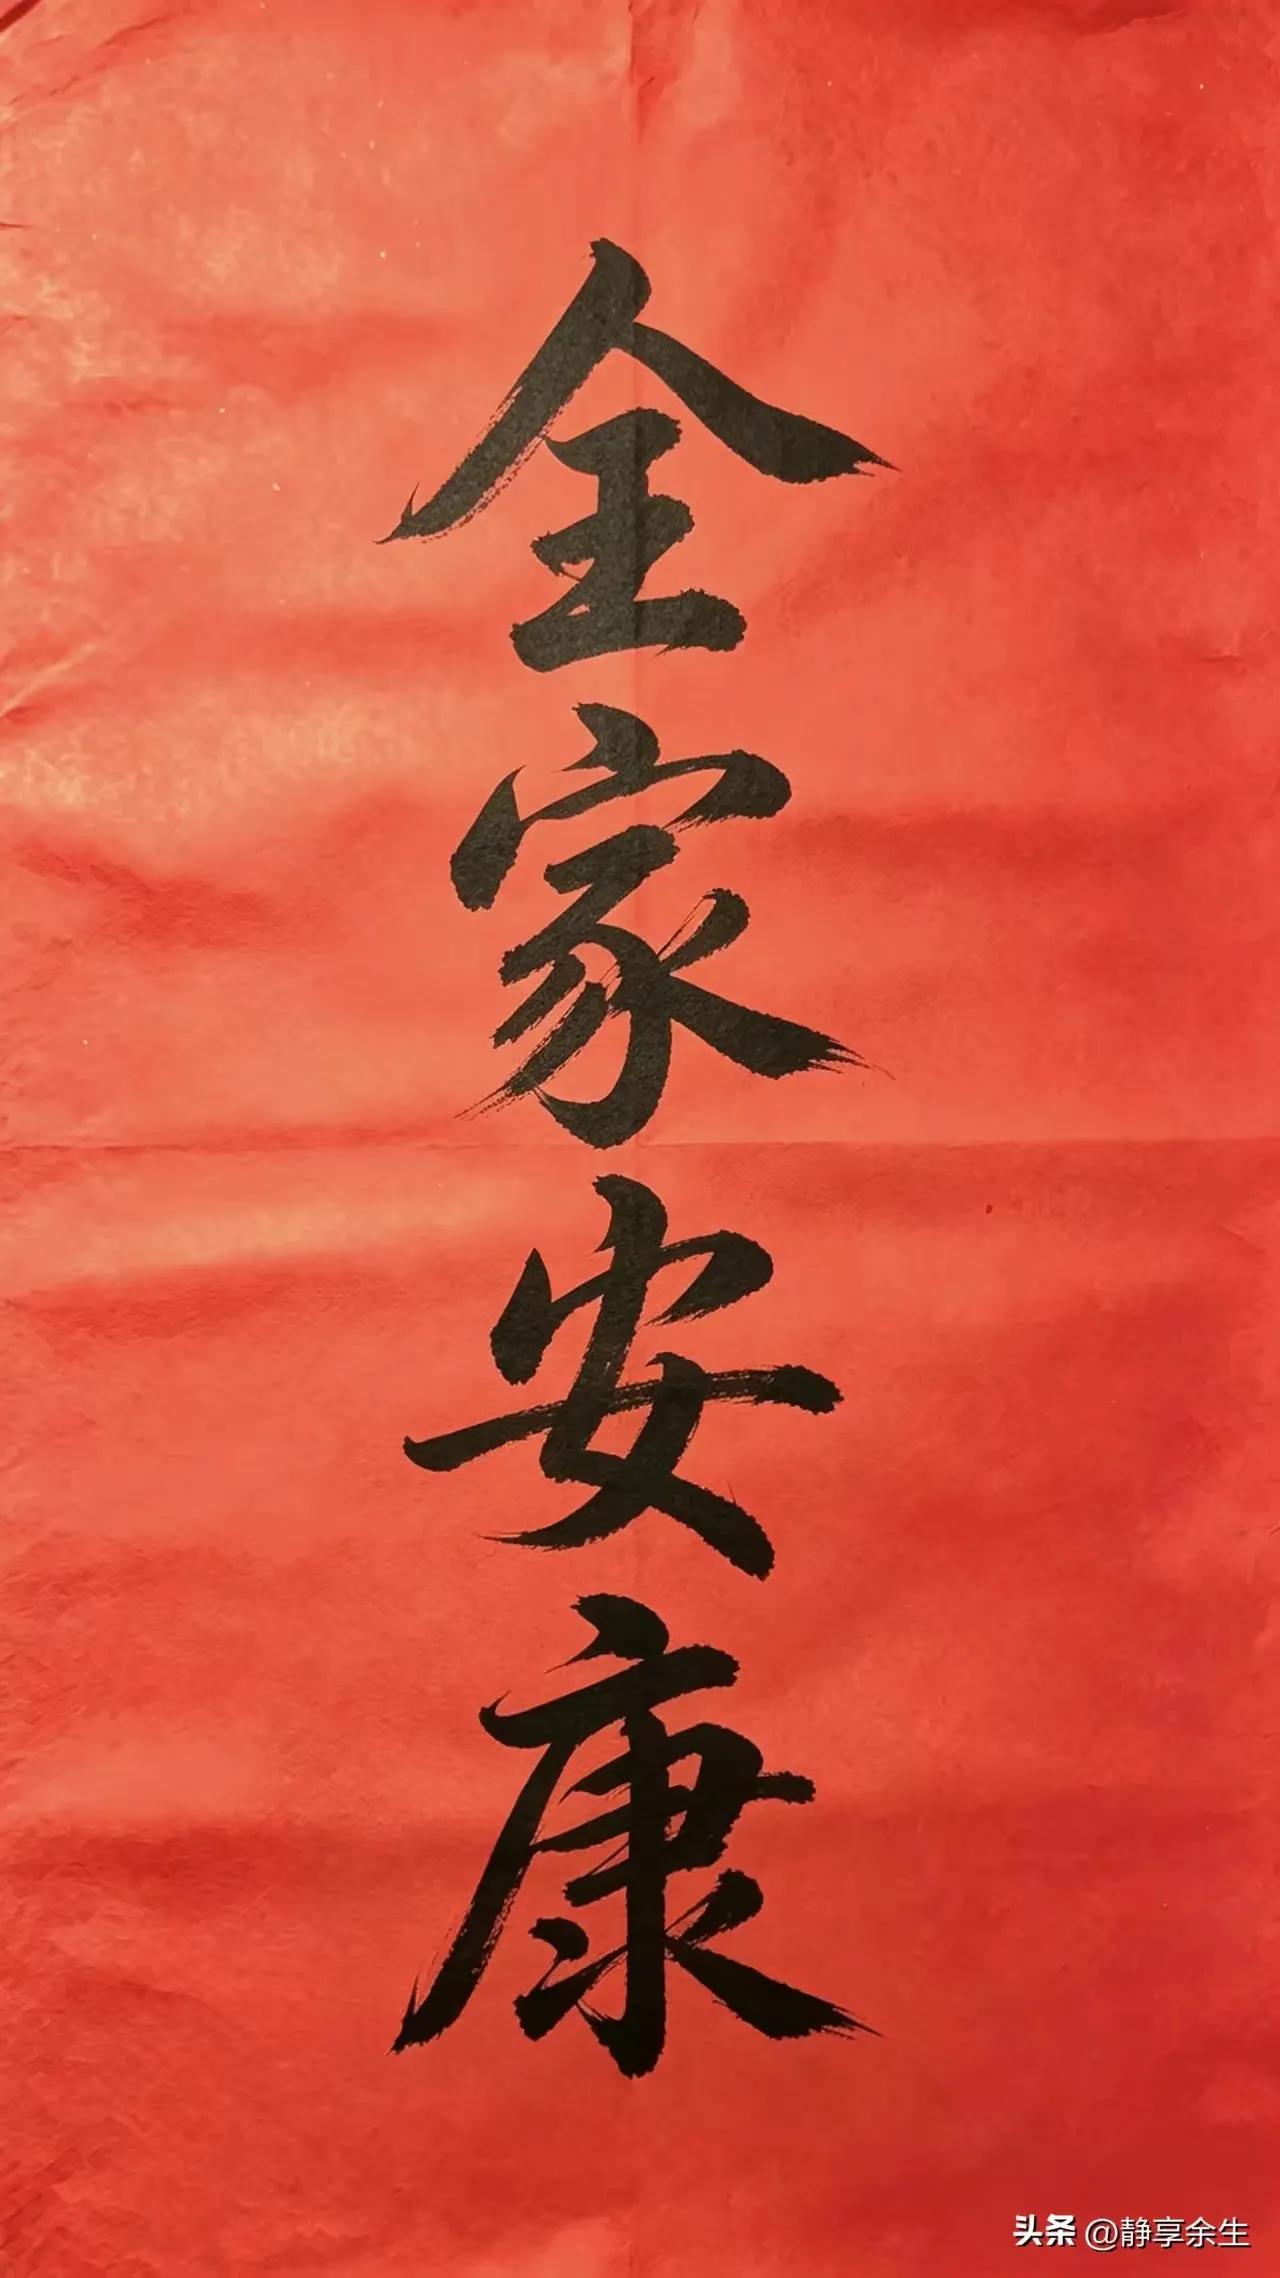 全家安康
头条 @静享余生